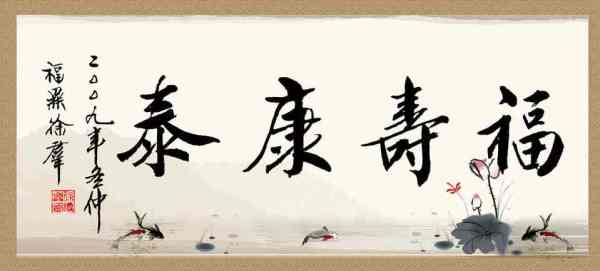 福壽康泰
二〇〇九年冬仲
福鼎徐群